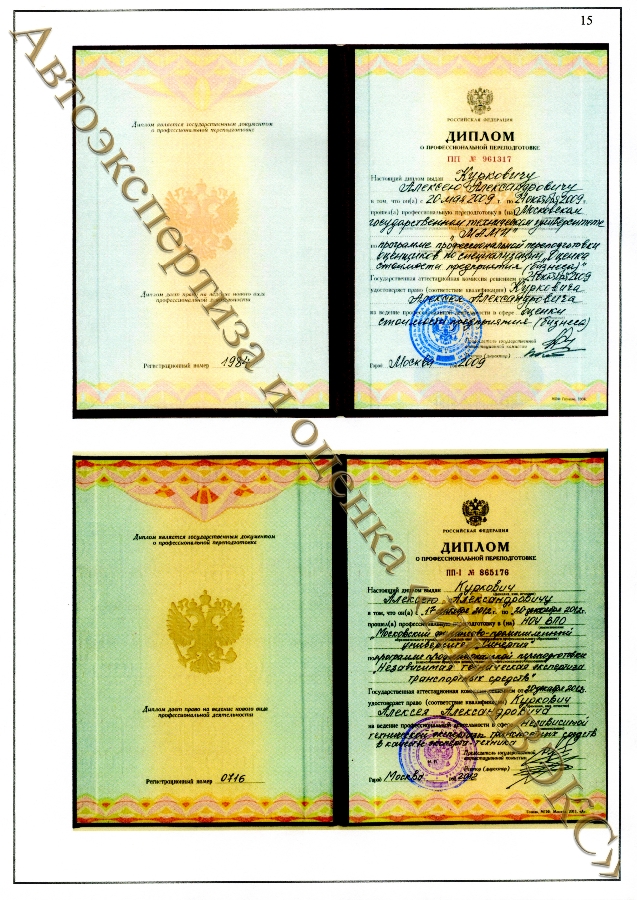 15
Автоэкспертиза и оценка
Диплом является государственным документом
о профессиональной переподготовке
Диплом дает право на ведение нового вида
профессиональной деятельности
Регистрационный номер 1984
РОССИЙСКАЯ ФЕДЕРАЦИЯ
ДИПЛОМ
О ПРОФЕССИОНАЛЬНОЙ ПЕРЕПОДГОТОВКЕ
ПП № 961317
Настоящий диплом выдан Курковичу
Алексею Александровичу
в том, что он(а) с 20 мая 2009 г. по 2009г.
прошел(а) профессиональную переподготовку в (на) Московском
государственном техническом университете
"МАМИ"
по программе профессиональной переподготовки
оценщиков по специализации "Оценка
стоимости предприятия (бизнеса)"
Государственная аттестационная комиссия решением от 2009
удостоверяет право (соответствие квалификации) Курковича
Алексея Александровича
на ведение профессиональной деятельности в сфере оценки
стоимости предприятия (бизнеса)
Председатель государственной
аттестационной комиссии
Ректор (директор)
Город Москва 2009
Диплом является государственным документом
о профессиональной переподготовке
Диплом дает право на ведение нового вида
профессиональной деятельности
Регистрационный номер 0716
РОССИЙСКАЯ ФЕДЕРАЦИЯ
ДИПЛОМ
О ПРОФЕССИОНАЛЬНОЙ ПЕРЕПОДГОТОВКЕ
ПП-I № 865176
Настоящий диплом выдан Куркович
Алексею Александровичу
в том, что он(а) с 17 2012г. по 20 декабря 2012г.
прошел(а) профессиональную переподготовку в (на) НОУ ВПО
"Московский финансово-промышленный
университет "Синергия"
по программе профессиональной переподготовки
"Независимая техническая экспертиза
транспортных средств"
Государственная аттестационная комиссия решением от 20 декабря 2012г.
удостоверяет право (соответствие квалификации) Куркович
Алексея Александровича
на ведение профессиональной деятельности в сфере Независимой
технической экспертизы транспортных средств
в качестве эксперта-техника
Председатель государственной
аттестационной комиссии
Ректор (директор)
Город Москва 2012